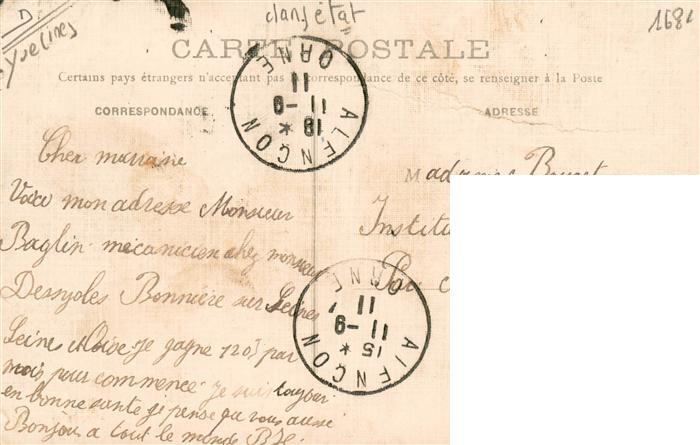 D
Yvelines
dans état
1681
CARTE POSTALE
Certains pays étrangers n'acceptant pas la correspondance de ce côté, se renseigner à la Poste
CORRESPONDANCE
ADRESSE
ALENÇON
ORNE
18 *
11 - 9
11
Cher marraine
Voici mon adresse Monsieur
Baglin mécanicien chez monsieur
Dessyoles Bonniere sur Seines
Seine et Oise je gagne 120f par
mois pour commencé je suis toujour
en bonne santé je pense que vous aussi
Bonjour a tout le monde
Madame
Institu
Par
ALENÇON
ORNE
15 *
11 - 9
11